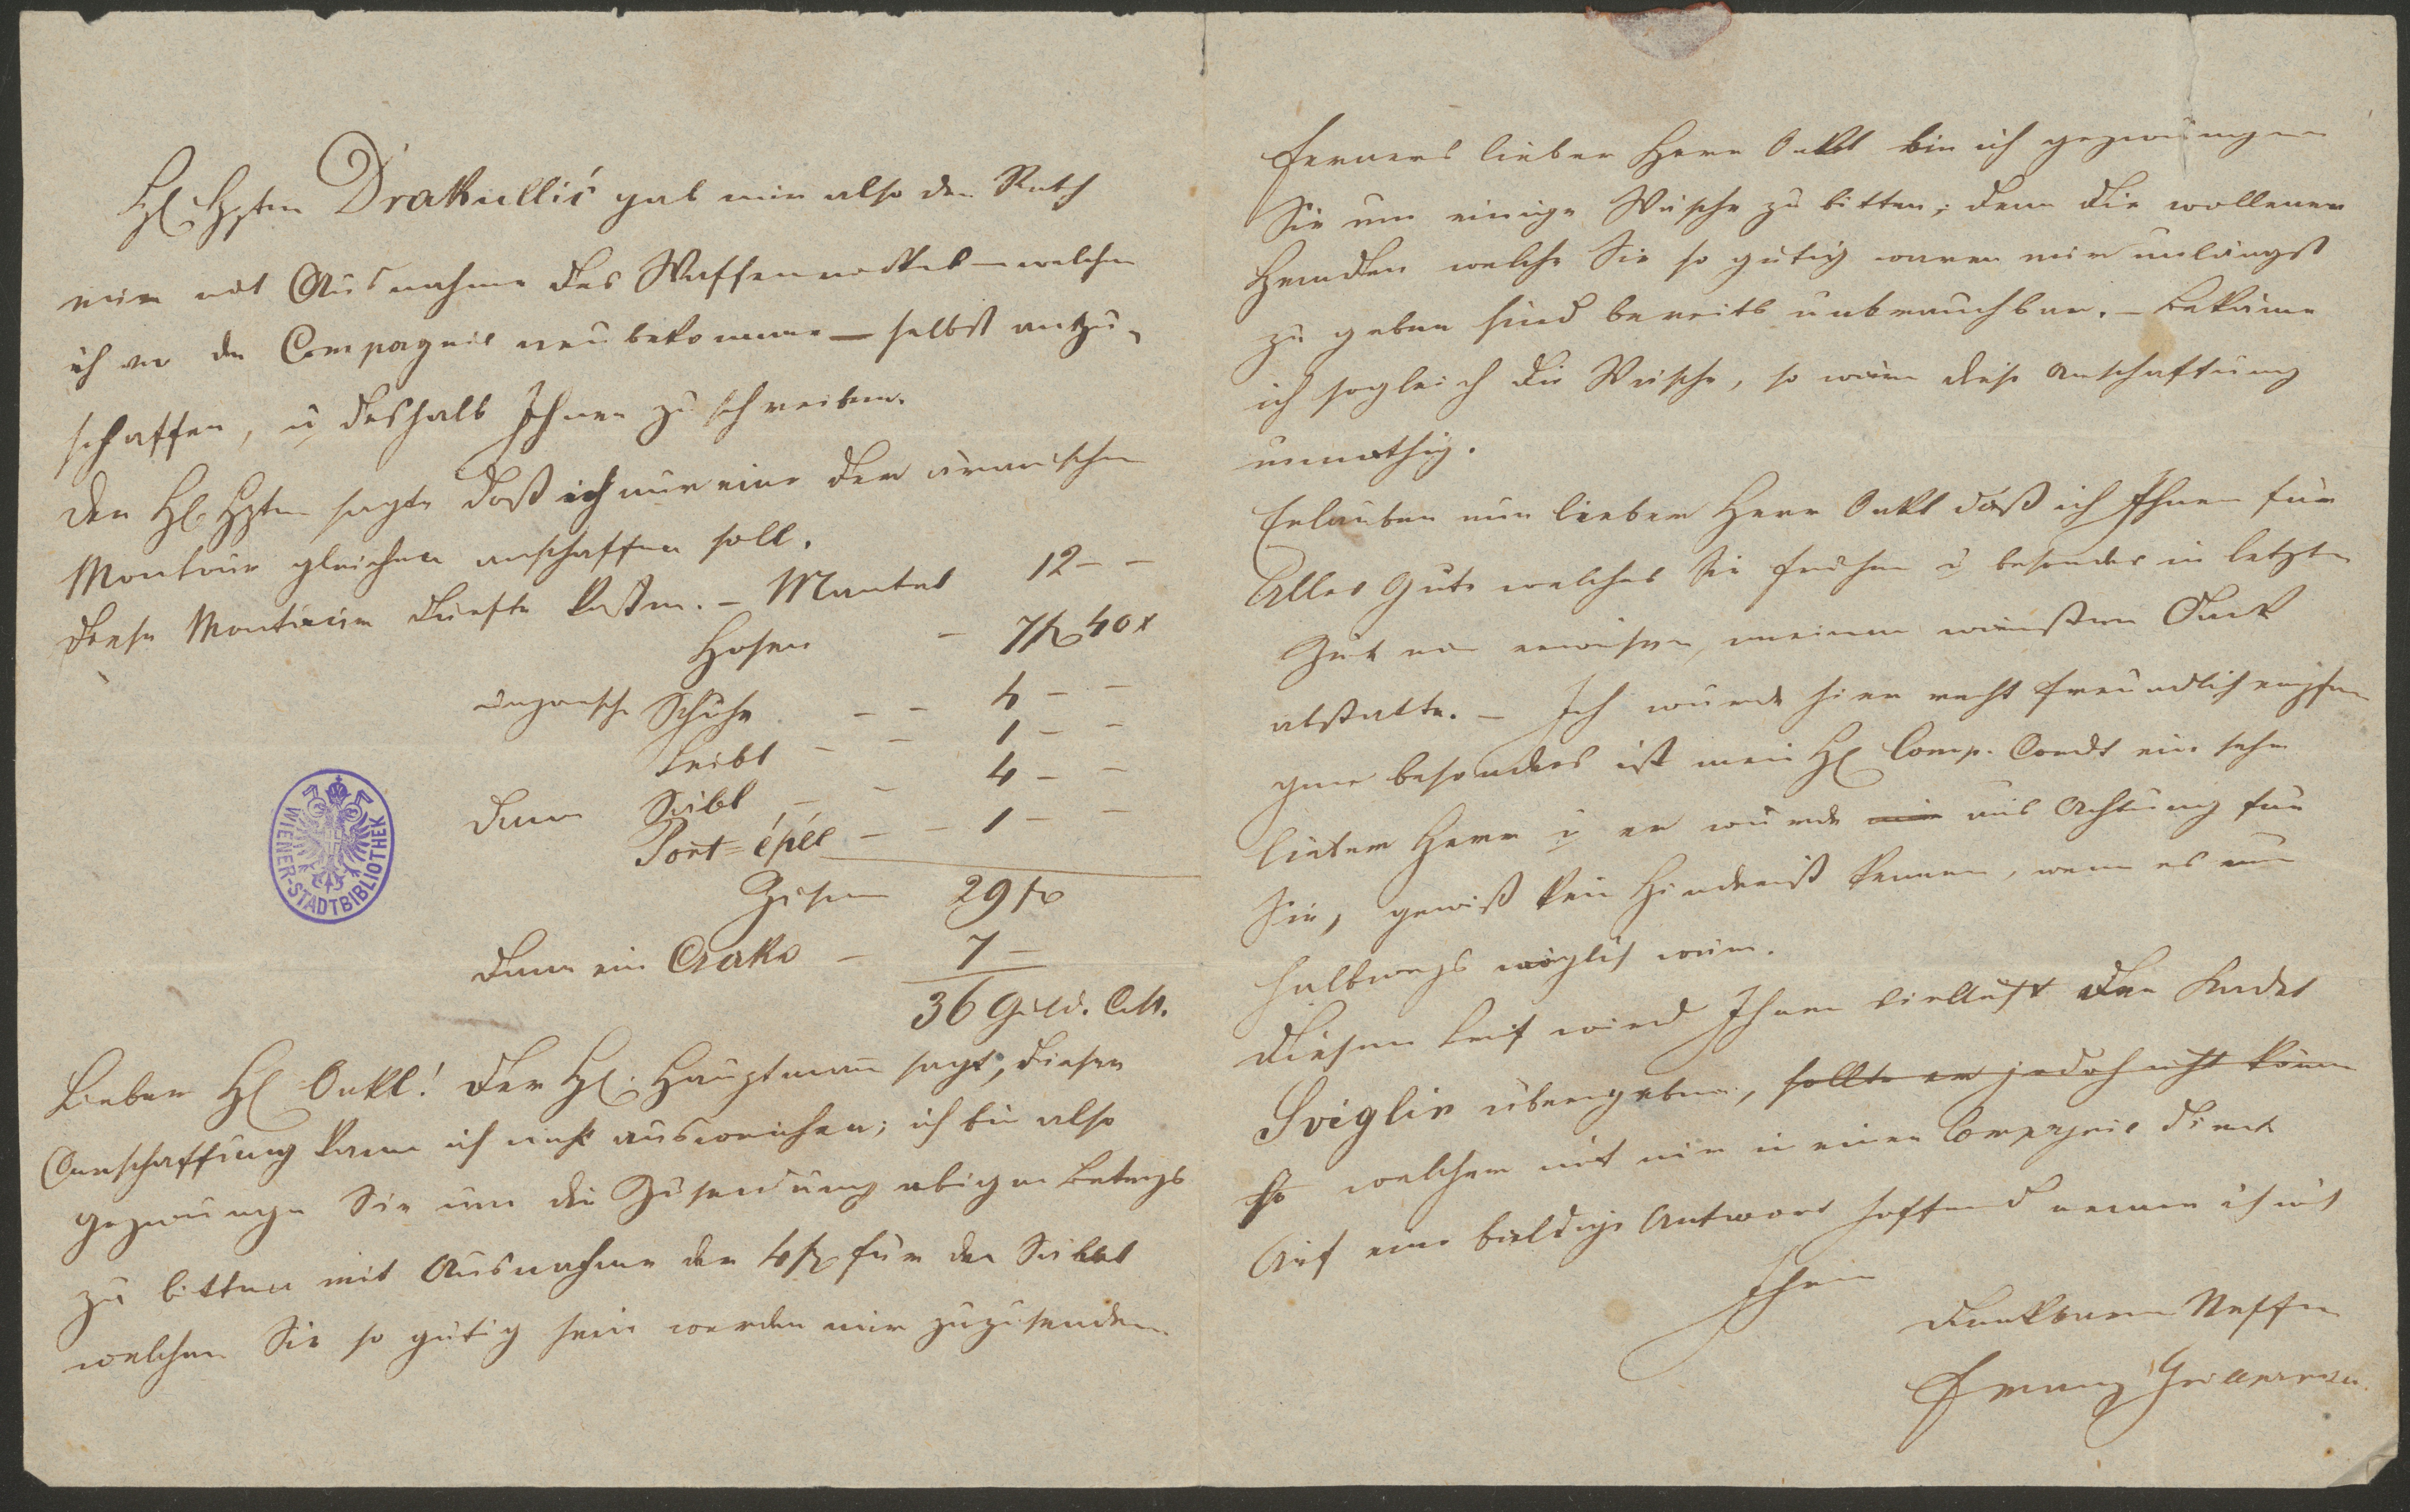 Hℓ. Hptm Drakullić gab mir also den Rath
mir mit Ausnahme des Waffenrockes – welchen
ich von der Compagnie neu bekomme – selbst anzu-
schaffen, u deshalb Ihnen zu schreiben.
Der Hℓ. Hptm sagte daß ich nur eine der ärarischen
Montour gleichen anschaffen soll.
Diese Montour dürfte kosten. – Mantel 12 – –
Hosen – 7 fl 40 x
ungarische Schuhe – – 4 – –
Leibl – – 1 – –
dann Säbel – – 4 – –
Port-épée – – 1 – –
Zusam 29 fl
dann ein Csako – 7 –
36 Guld. CM.
Lieber Hℓ Onkl! Der Hℓ. Hauptmann sagt, dieser
Anschaffung kann ich nicht ausweichen; ich bin also
gezwungen Sie um die Zusendung obigen Betrags
zu bitten mit Ausnahme der 4 fl für den Säbel
welchen Sie so gütig sein werden mir zuzusenden.
WIENER-STADTBIBLIOTHEK
Ferners lieber Herr Onkl bin ich gezwungen
Sie um einige Wäsche zu bitten; denn die wollenen
Hemden welche Sie so gütig waren mir unlängst
zu geben sind bereits unbrauchbar. – Bekäme
ich sogleich die Wäsche, so wäre diese Anschaffung
unnöthig.
Erlauben nun lieber Herr Onkl daß ich Ihnen für
Alles Gute welches Sie früher u besonders in letzter
Zeit mir erwiesen, meinen wärmsten Dank
abstatte. – Ich wurde hier recht freundlich empfan
gen besonders ist mein Hℓ Comp. Comdt ein sehr
lieber Herr u er würde mir aus Achtung für
Sie, gewiß kein Hinderniß kennen, wenn es nur
halbwegs möglich wäre.
Diesen Brief wird Ihnen vielleicht der Kadet
Sviglin übergeben, sollte er jedoch nicht können
so welcher mit mir in einer Compagnie dient
Auf eine baldige Antwort hoffend nenne ich mich
Ihren
dankbaren Neffen
Franz Grillparzer